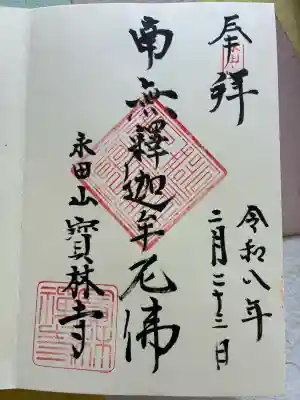 奉拝
令和八年
二月二十三日
南無釋迦牟尼佛
永田山
寳林寺